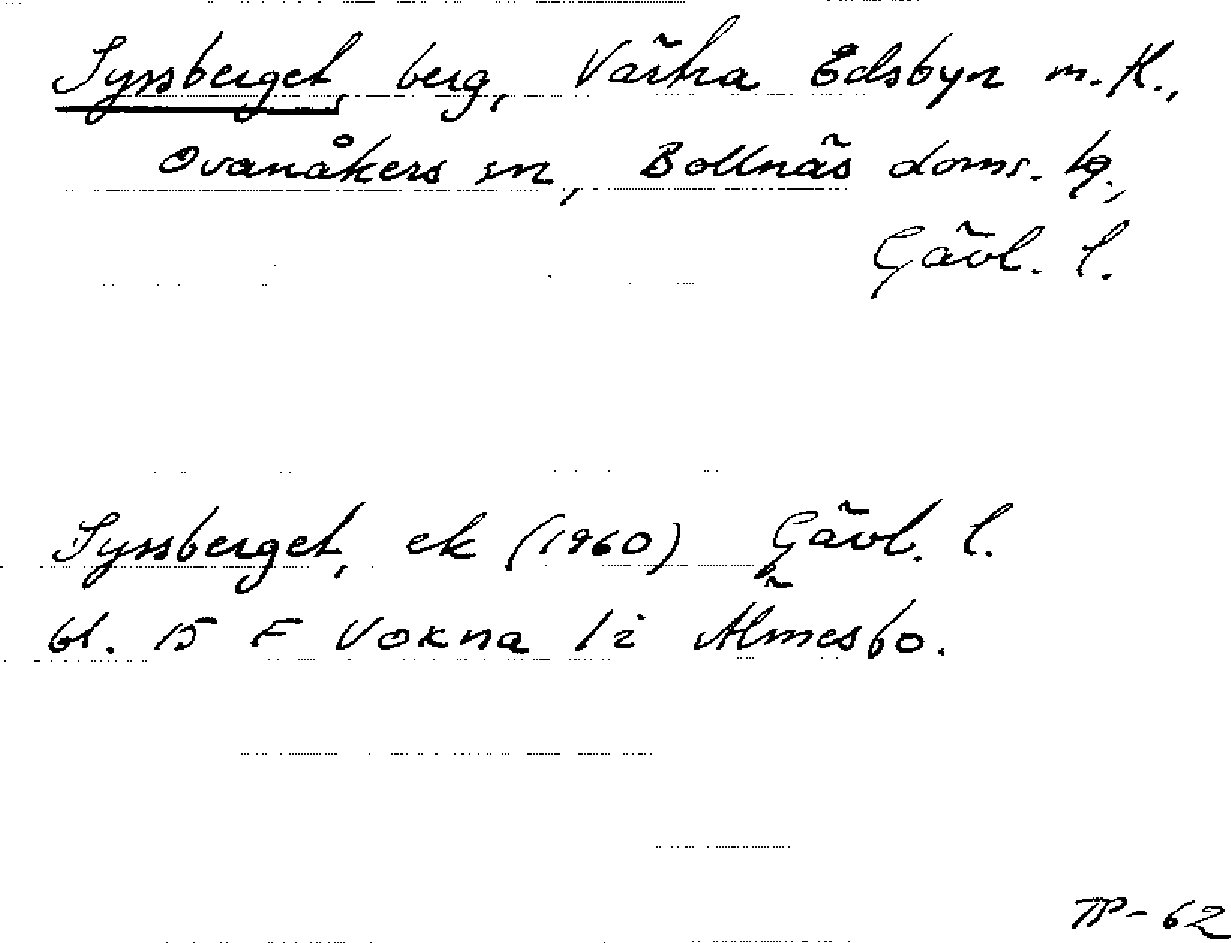 Syssberget, berg, Västra Edsbyn m. fl.,
Ovanåkers sn, Bollnäs doms. lg.,
Gävl. l.
Syssberget, ek (1960) Gävl. l.
bl. 15 F Voxna 1 i Älmesbo.
TP-62